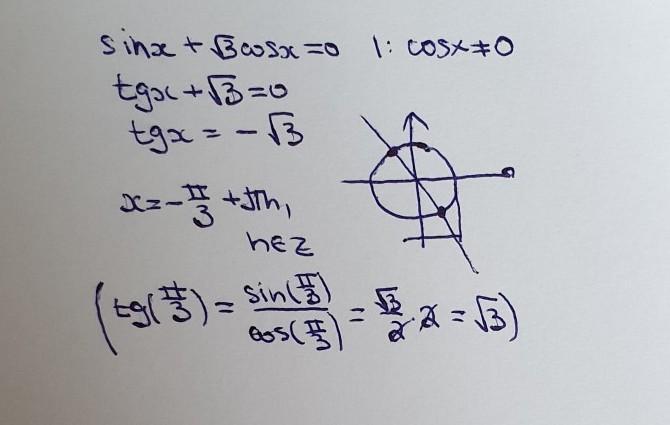 sinx + √3cosx = 0 | : cosx ≠ 0
tgx + √3 = 0
tgx = - √3
x = - π/3 + πn,
n ∈ Z
(tg(π/3) = sin(π/3)/cos(π/3) = √3/2 · 2 = √3)